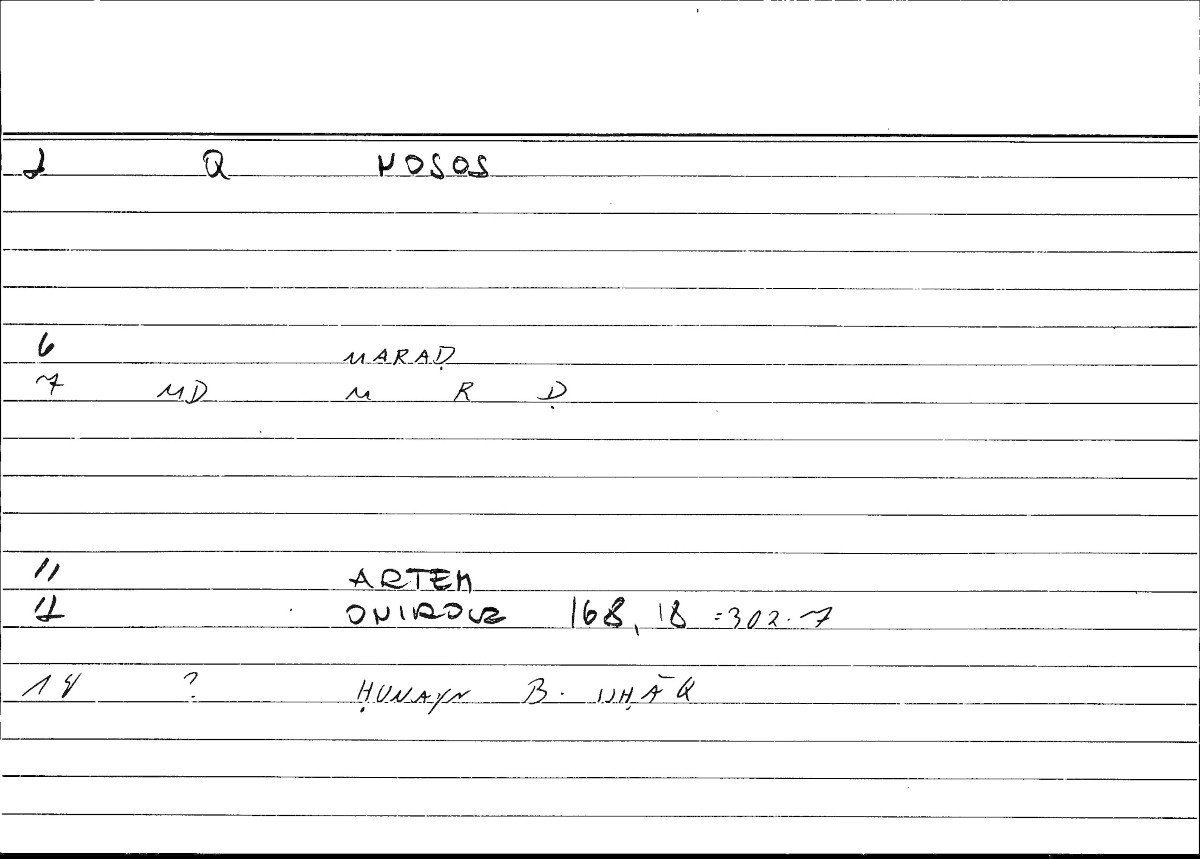 1 Q NOSOS
6 MARAḌ
7 MD M R Ḍ
11 ARTEM
12 ONIROCR 168, 18 = 302.7
14 ? ḤUNAYN B. ISḤĀQ